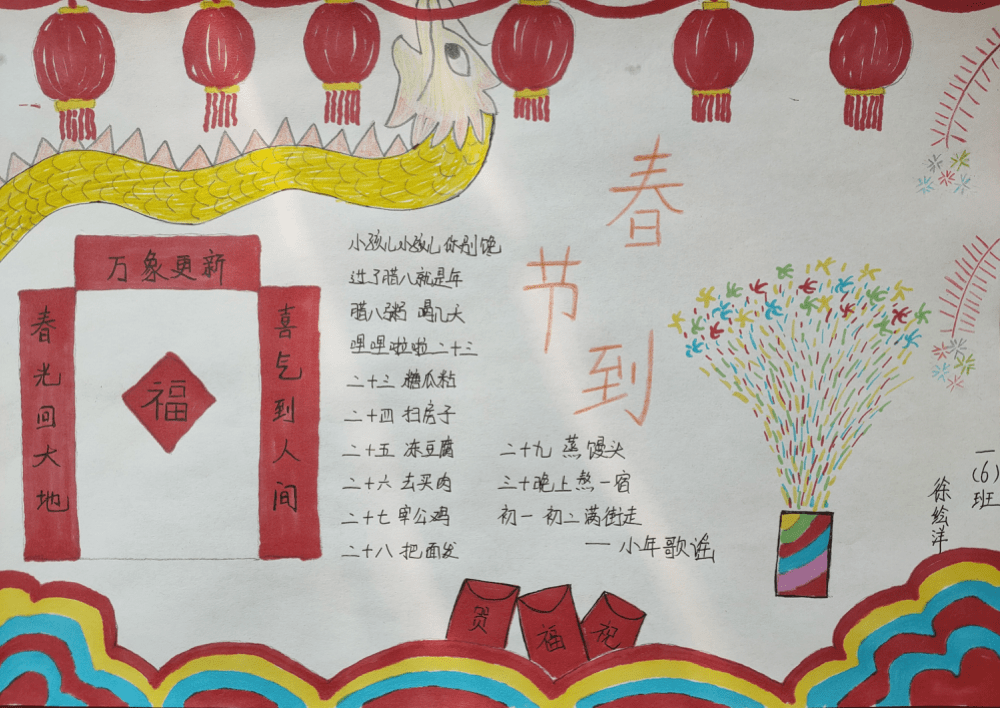 春节到
万象更新
春光回大地
喜气到人间
福
小孩儿小孩儿你别馋
过了腊八就是年
腊八粥 喝几天
哩哩啦啦二十三
二十三 糖瓜粘
二十四 扫房子
二十五 冻豆腐
二十六 去买肉
二十七 宰公鸡
二十八 把面发
二十九 蒸馒头
三十晚上熬一宿
初一 初二满街走
— 小年歌谣
贺
福
一(6)班
徐绘洋